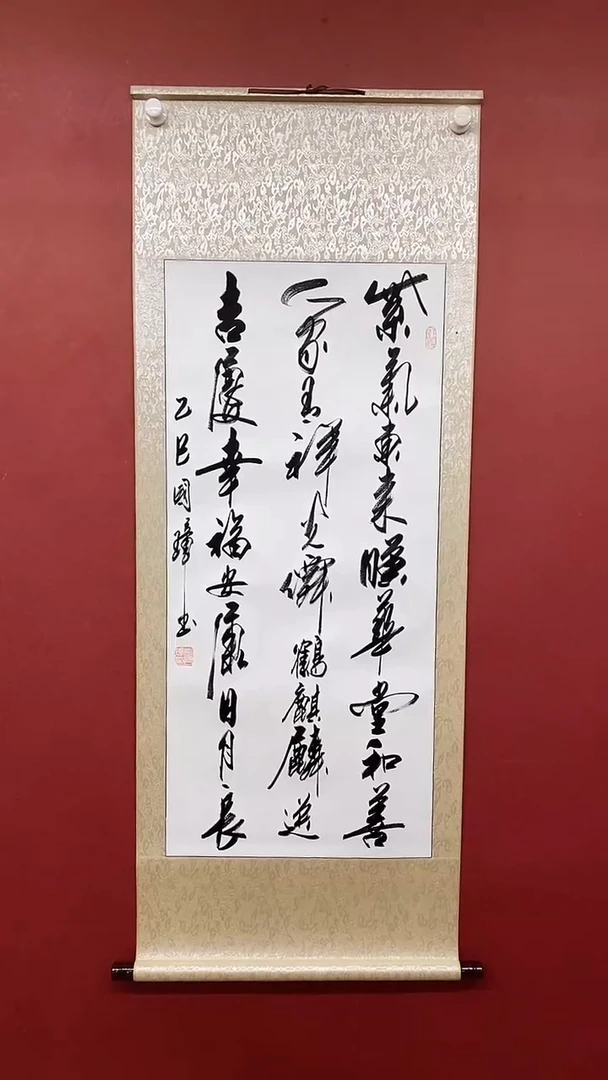 紫氣東来暎華堂和善
仁家有祥光僊鶴麒麟送
吉慶幸福安康日月長
乙巳國璋书